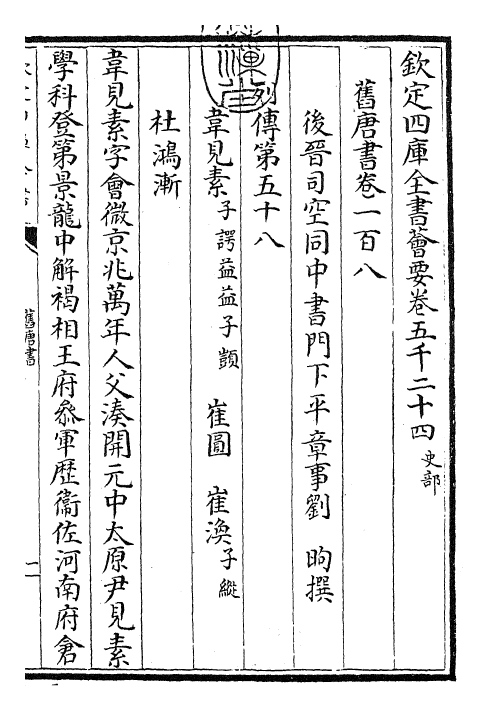 欽定四庫全書薈要卷五千二十四 史部
舊唐書卷一百八
後晉司空同中書門下平章事劉 昫撰
列傳第五十八
韋見素 子諤益益子顗 崔圓 崔渙 子縱
杜鴻漸
韋見素字會微京兆萬年人父湊開元中太原尹見素
學科登第景龍中解褐相王府叅軍歷衞佐河南府倉
舊唐書
一